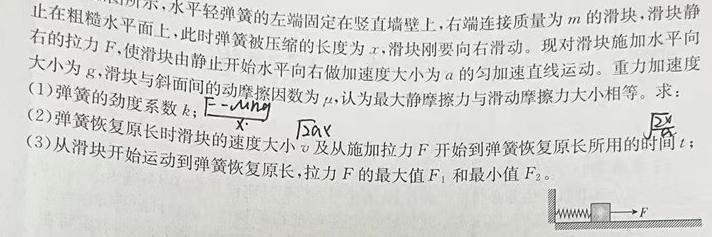 所示,水平轻弹簧的左端固定在竖直墙壁上,右端连接质量为 m 的滑块,滑块静
止在粗糙水平面上,此时弹簧被压缩的长度为 x,滑块刚要向右滑动。现对滑块施加水平向
右的拉力 F,使滑块由静止开始水平向右做加速度大小为 a 的匀加速直线运动。重力加速度
大小为 g,滑块与斜面间的动摩擦因数为 μ,认为最大静摩擦力与滑动摩擦力大小相等。求:
(1)弹簧的劲度系数 k; F-μmg/x
(2)弹簧恢复原长时滑块的速度大小 v 及从施加拉力 F 开始到弹簧恢复原长所用的时间 t;
√2ax
√2x/a
(3)从滑块开始运动到弹簧恢复原长,拉力 F 的最大值 F₁ 和最小值 F₂。
F